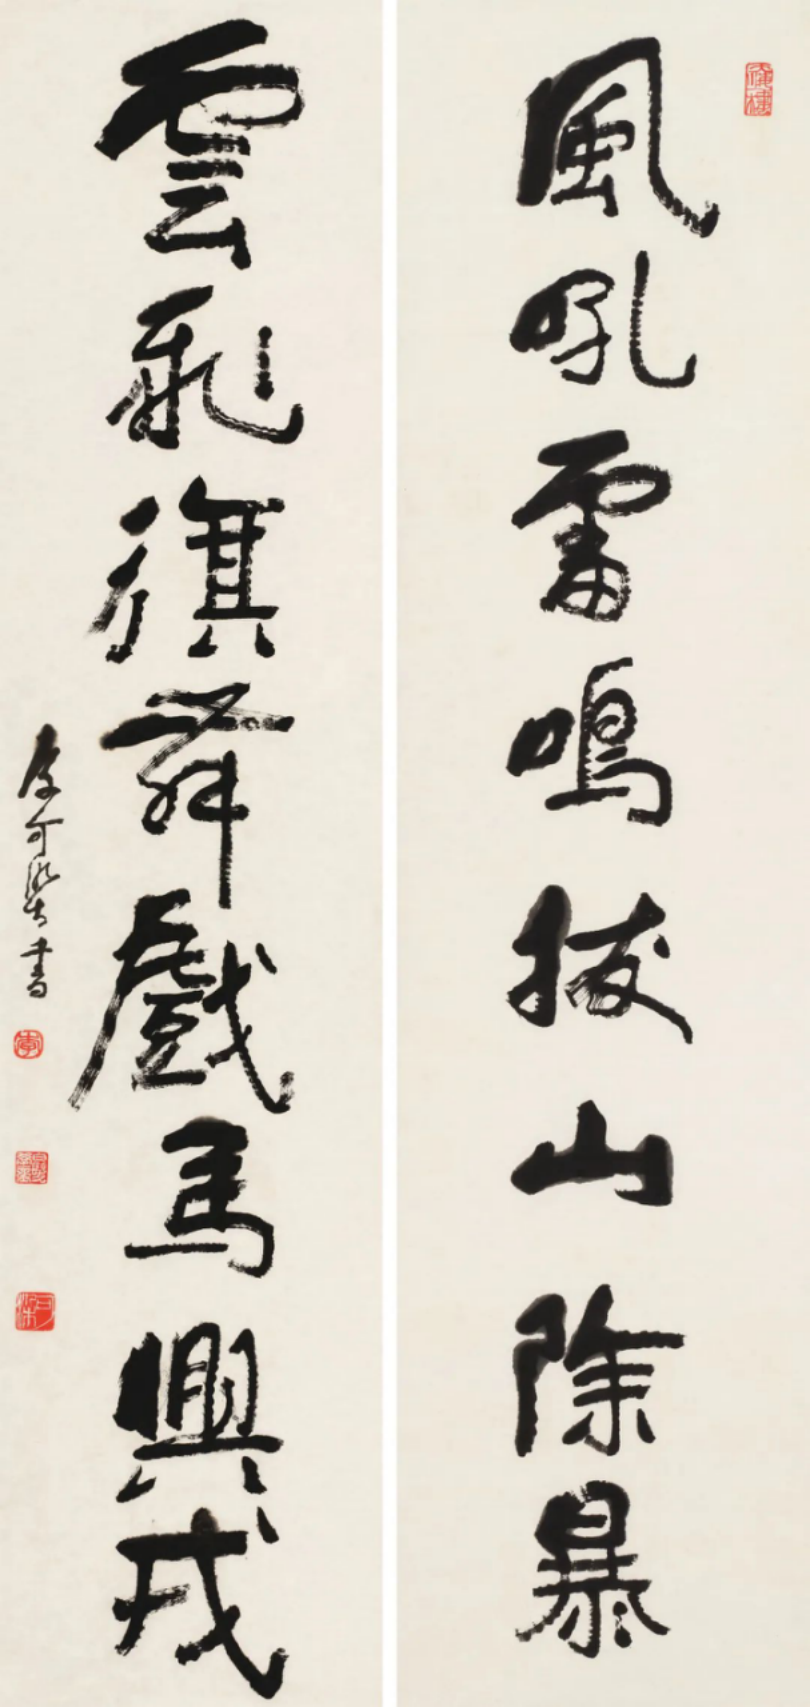 風吼雷鳴拔山除暴
雲飛旗舞戲馬興戎
李可染書
李
可染